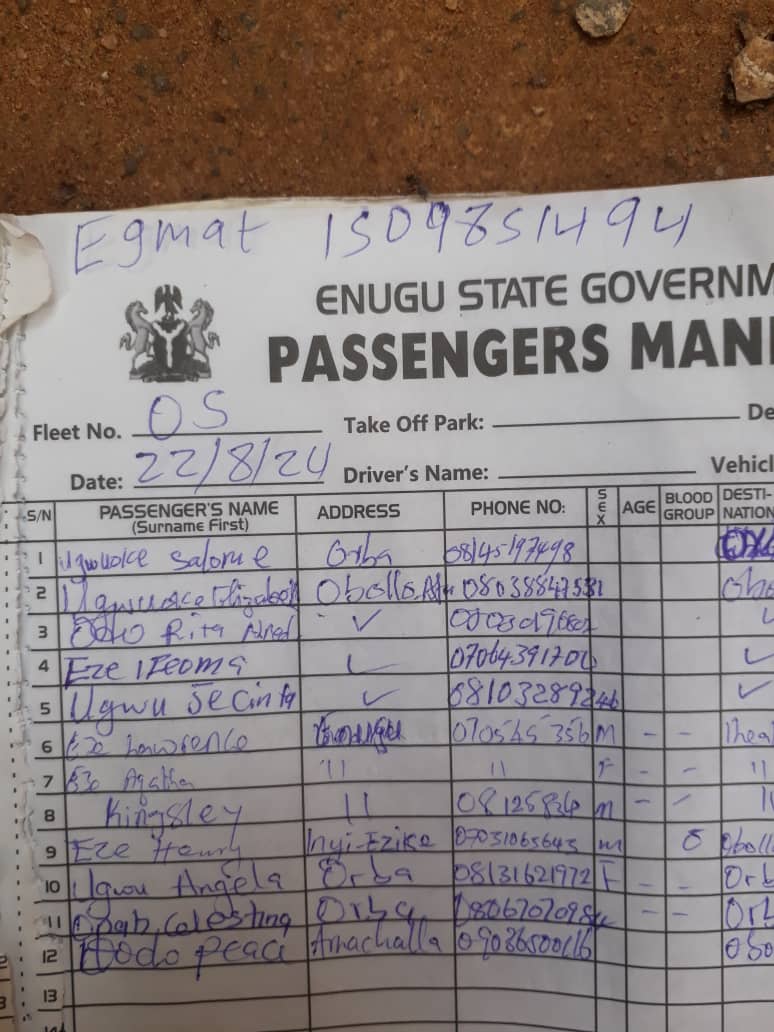 Egmat 1509851494
ENUGU STATE GOVERNM
PASSENGERS MANI
Fleet No. 05 Take Off Park: De
Date: 22/8/24 Driver's Name: Vehicl
S/N PASSENGER'S NAME (Surname First) ADDRESS PHONE NO: SEX AGE BLOOD GROUP DESTI-NATION
1 Ugwuoke Salome Orba 08145197498
2 Ugwuoke Elizabeth Obollo 08038847531 Obo
3 Odo Rita ✓
4 Eze Ifeoma ✓ 07064391706 ✓
5 Ugwu Jecinta ✓ 08103289246 ✓
6 Eze Lawrence 070545 356 M - -
7 Eze Agatha 11 11 F - - 11
8 Kingsley 11 08125836 m - - 11
9 Eze Henry Inyi-Ezike 07031065643 m Oboll
10 Ugwu Angela Orba 08131621972 F - - Orb
11 Celestina Orba - - Orb
12 Odo Peace Amachalla Obo
13